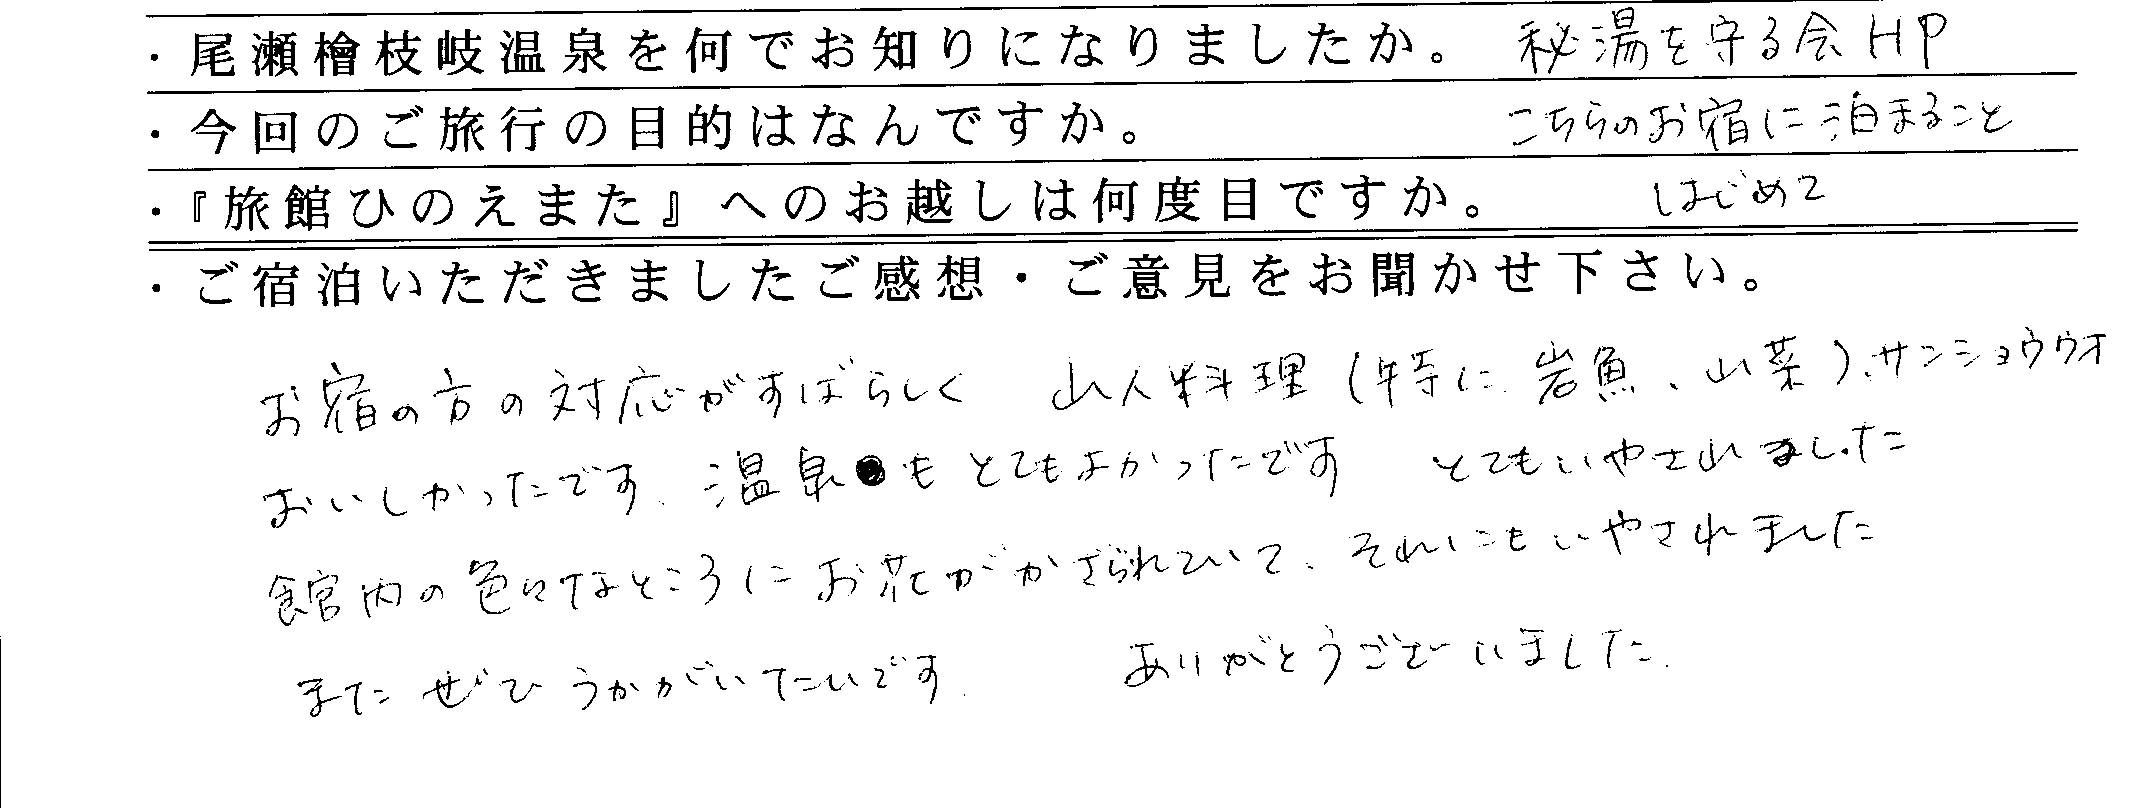 ・尾瀬檜枝岐温泉を何でお知りになりましたか。 秘湯を守る会HP
・今回のご旅行の目的はなんですか。 こちらのお宿に泊まること
・『旅館ひのえまた』へのお越しは何度目ですか。 はじめて
・ご宿泊いただきましたご感想・ご意見をお聞かせ下さい。
お宿の方の対応がすばらしく 山人料理(特に、岩魚、山菜)、サンショウウオ
おいしかったです。温泉もとてもよかったです とてもいやされました
館内の色々なところにお花がかざられていて、それにもいやされました
またぜひうかがいたいです。 ありがとうございました。